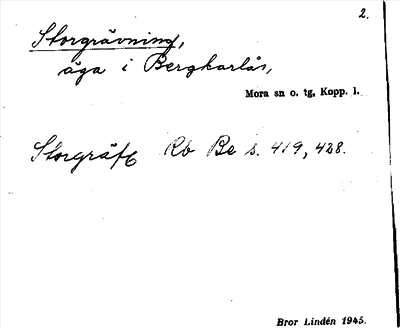 2.
Storgrävning,
äga i Bergkarlås,
Mora sn o. tg, Kopp. l.
Storgräfv Rb Be s. 419, 428.
Bror Lindén 1945.